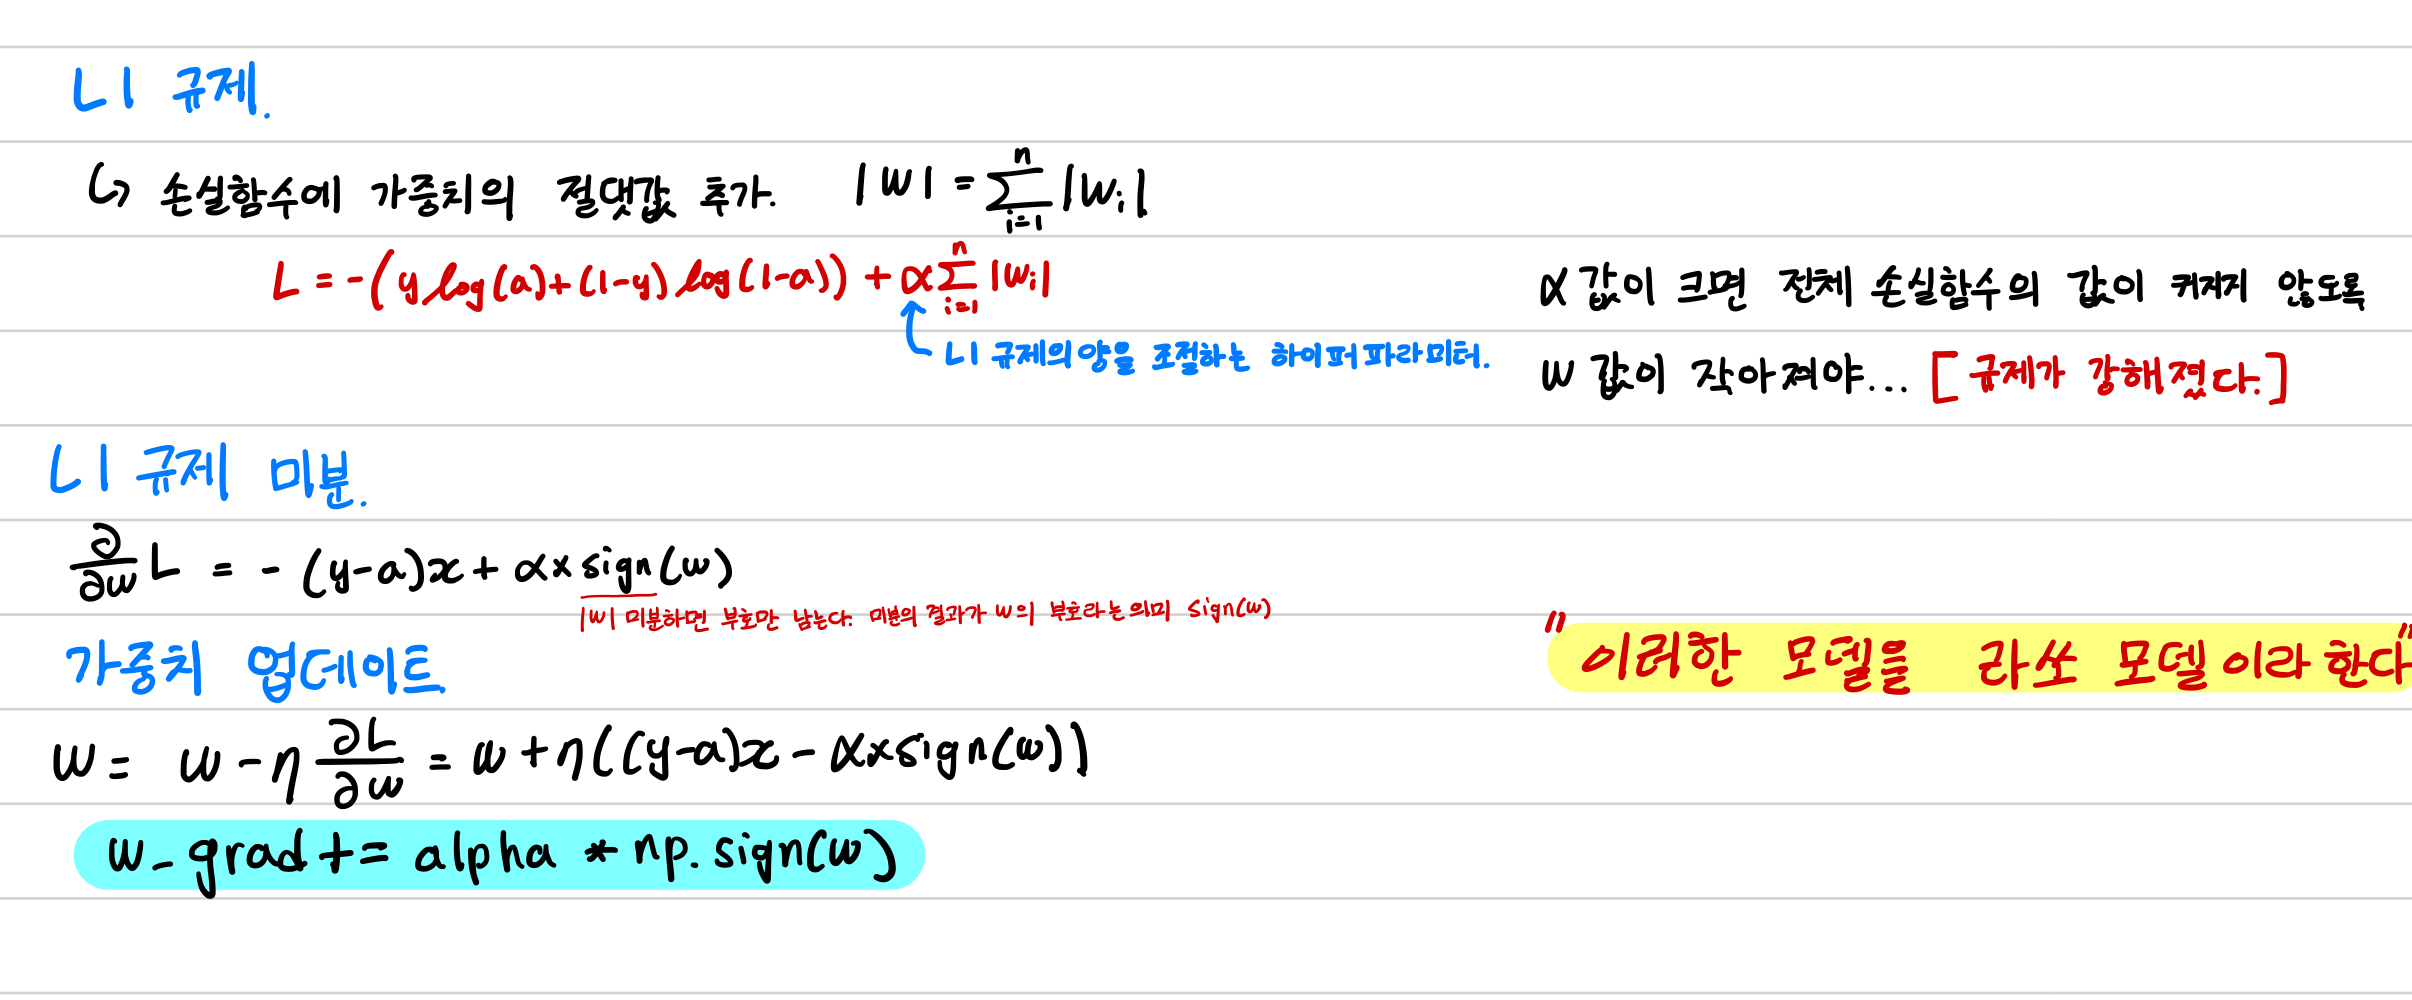 L1 규제.
↳ 손실함수에 가중치의 절댓값 추가. |w| = \sum_{i=1}^{n} |w_i|
L = -(y log(a) + (1-y) log(1-a)) + α \sum_{i=1}^{n} |w_i|
L1 규제의 양을 조절하는 하이퍼 파라미터.
α 값이 크면 전체 손실함수의 값이 커지지 않도록
w 값이 작아져야... [규제가 강해졌다.]
L1 규제 미분.
∂/∂w L = - (y-a)x + α × sign(w)
|w| 미분하면 부호만 남는다. 미분의 결과가 w의 부호라는 의미 sign(w)
"이러한 모델을 라쏘 모델이라 한다"
가중치 업데이트.
w = w - η ∂L/∂w = w + η((y-a)x - α × sign(w))
w_grad += alpha * np.sign(w)